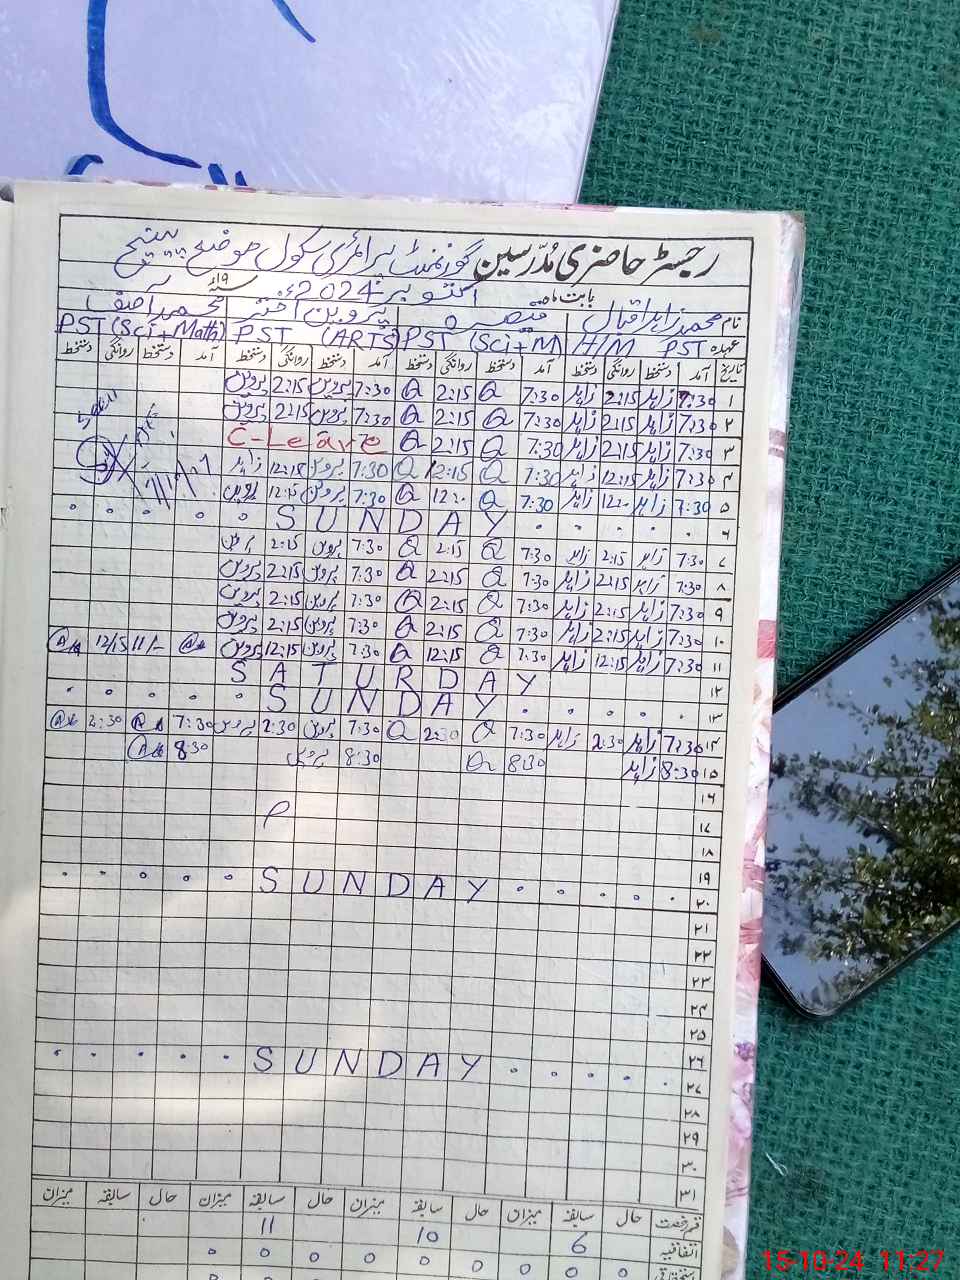 رجسٹر حاضری مُدرّسین گورنمنٹ پرائمری سکول موضع
بابت ماہ اکتوبر 2024ء سنہ ۱۹ء
نام محمد زاہد اقبال قیصرہ پروین اختر محمد آصف
عہدہ H/M PST PST (Sci+M PST (ARTS) PST (Sci+Math)
تاریخ آمد دستخط روانگی دستخط آمد دستخط روانگی دستخط آمد دستخط روانگی دستخط آمد دستخط روانگی دستخط
۱ 7:30 زاہد 2:15 زاہد 7:30 Q 2:15 Q 7:30 پروین 2:15 پروین
۲ 7:30 زاہد 2:15 زاہد 7:30 Q 2:15 Q 7:30 پروین 2:15 پروین
۳ 7:30 زاہد 2:15 زاہد 7:30 Q 2:15 Q C-Leave
۴ 7:30 زاہد 12:15 زاہد 7:30 Q 12:15 Q 7:30 پروین 12:15 زاہد
۵ 7:30 زاہد 12:20 زاہد 7:30 Q 12:20 Q 7:30 پروین 12:15 پروین
۶ SUNDAY
۷ 7:30 زاہد 2:15 زاہد 7:30 Q 2:15 Q 7:30 پروین 2:15 پروین
۸ 7:30 زاہد 2:15 زاہد 7:30 Q 2:15 Q 7:30 پروین 2:15 پروین
۹ 7:30 زاہد 2:15 زاہد 7:30 Q 2:15 Q 7:30 پروین 2:15 پروین
۱۰ 7:30 زاہد 2:15 زاہد 7:30 Q 2:15 Q 7:30 پروین 2:15 پروین
۱۱ 7:30 زاہد 12:15 زاہد 7:30 Q 12:15 Q 7:30 پروین 12:15 پروین 11/- 12/15
۱۲ SATURDAY
۱۳ SUNDAY
۱۴ 7:30 زاہد 2:30 زاہد 7:30 Q 2:30 Q 7:30 پروین 2:30 پروین 7:30 2:30
۱۵ 8:30 زاہد 8:30 Q 8:30 پروین 8:30
۱۶
۱۷ P
۱۸
۱۹
۲۰ SUNDAY
۲۱
۲۲
۲۳
۲۴
۲۵
۲۶
۲۷ SUNDAY
۲۸
۲۹
۳۰
۳۱
قسم رخصت حال سابقہ میزان حال سابقہ میزان حال سابقہ میزان حال سابقہ میزان
اتفاقیہ 6 10 11
0 0 0 0 0 0 0 0 0
15-10-24 11:27